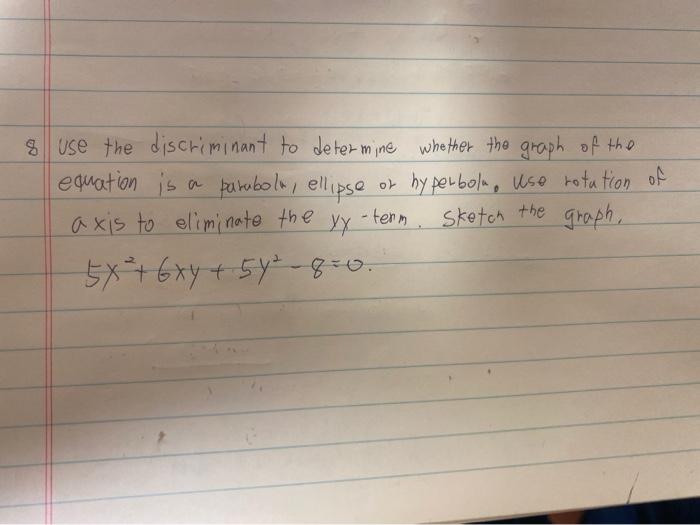 8 use the discriminant to determine whether the graph of the
equation is a parabola, ellipse or hyperbola. Use rotation of
axis to eliminate the yx-term. Sketch the graph.
5x²+6xy+5y²-8=0.